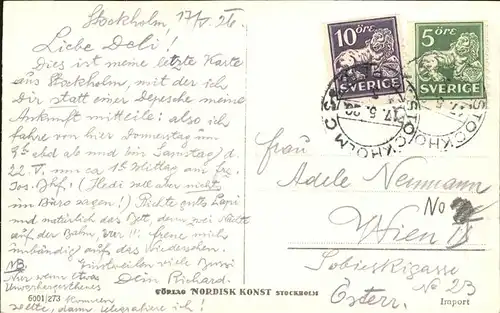 Stockholm 17/V. 26.
Liebe Deli!
Dies ist meine letzte Karte
aus Stockholm, mit der ich
Dir statt einer Depesche meine
Ankunft mitteile: also ich
fahre von hier Donnerstag um
9h abd ab und bin Samstag d.
22.V. um ca 1h Mittag am Frz.
Jos. Bhf. (Hedi soll aber nicht
im Büro sagen!) Richte guts Papi
und natürlich das Bett, denn zwei Nächte
auf der Bahn, Freue mich
unbändig auf das Wiedersehen.
Einstweilen viele Bussi
Dein Richard.
NB.
Nur wenn etwas
Unvorhergesehenes
kommen
sollte, dann telegrafiere ich!
6001/273
FÖRLAG NORDISK KONST STOCKHOLM
10 ÖRE
SVERIGE
5 ÖRE
SVERIGE
STOCKHOLM
17.5.26
STOCKHOLM
17.5.
Frau
Adele Neumann
No
Wien IX
Sobieskigasse
No 23
Österr.
Import